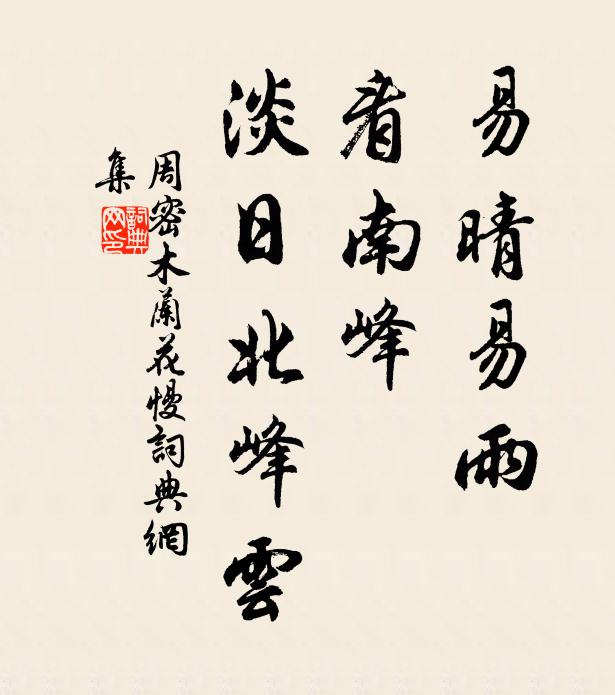 易晴易雨
看南峰
淡日北峰雲
周密木蘭花慢詞典網
集
詞典网印